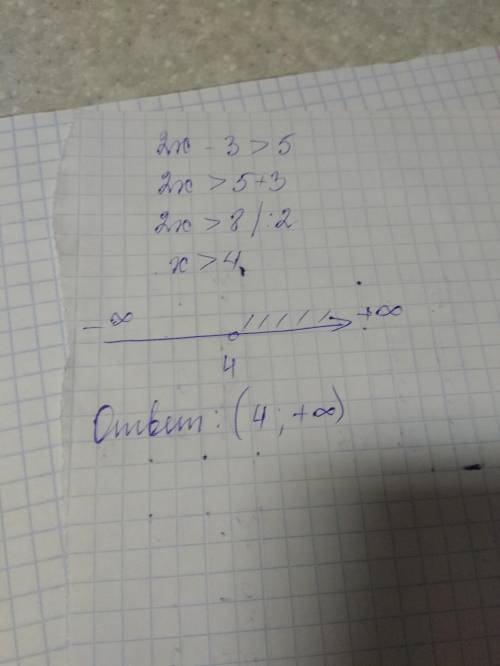 2x - 3 > 5
2x > 5+3
2x > 8 |:2
x > 4
-∞ +∞
4
Ответ: (4; +∞)